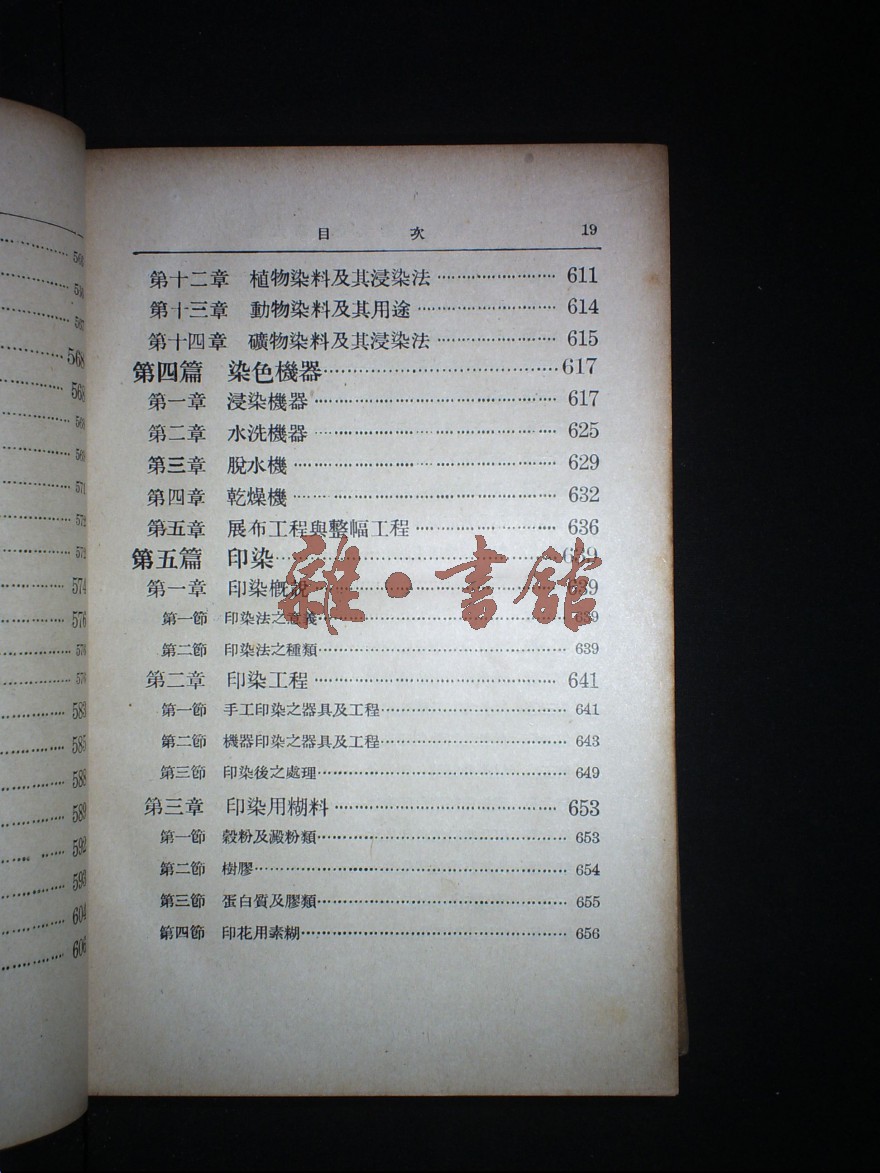 568
568
569
571
572
572
574
576
576
583
585
588
589
592
593
604
606
目 次 19
第十二章 植物染料及其浸染法 ························ 611
第十三章 動物染料及其用途 ···························· 614
第十四章 礦物染料及其浸染法 ························ 615
第四篇 染色機器 ······································· 617
第一章 浸染機器 ················································ 617
第二章 水洗機器 ················································ 625
第三章 脫水機 ···················································· 629
第四章 乾燥機 ···················································· 632
第五章 展布工程與整幅工程 ···························· 636
第五篇 印染 ··············································· 639
第一章 印染概說 ················································ 639
第一節 印染法之意義 ················································ 639
第二節 印染法之種類 ················································ 639
第二章 印染工程 ················································ 641
第一節 手工印染之器具及工程 ···································· 641
第二節 機器印染之器具及工程 ···································· 643
第三節 印染後之處理 ················································ 649
第三章 印染用糊料 ············································ 653
第一節 穀粉及澱粉類 ················································ 653
第二節 樹膠 ···························································· 654
第三節 蛋白質及膠類 ················································ 655
第四節 印花用素糊 ···················································· 656
雜·書館